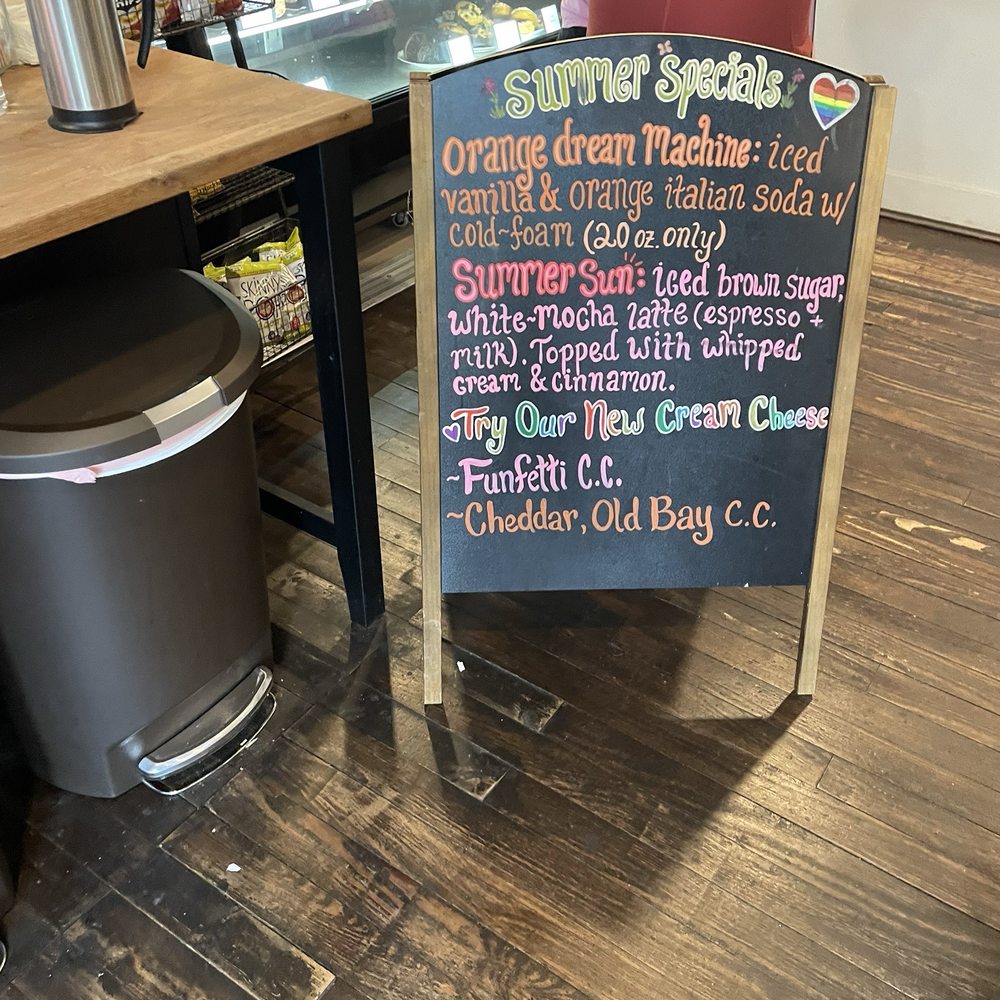 Summer Specials
Orange dream Machine: iced
vanilla & orange italian soda w/
cold-foam (20 oz. only)
Summer Sun: iced brown sugar,
white-mocha latte (espresso +
milk). Topped with whipped
cream & cinnamon.
Try Our New Cream Cheese
~Funfetti C.C.
~Cheddar, Old Bay C.C.
SKINNY